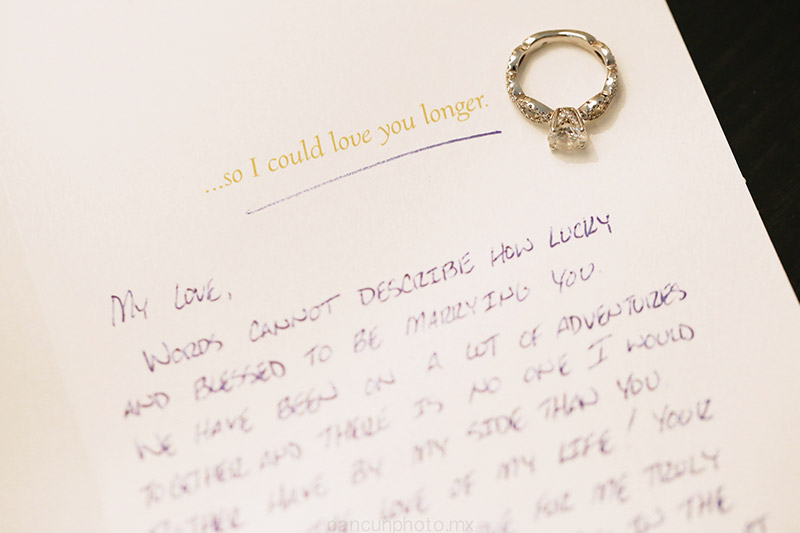 ...so I could love you longer.
My Love,
Words cannot describe how lucky
and blessed to be marrying you.
We have been on a lot of adventures
together and there is no one I would
rather have by my side than you
love of my life! Your
for me truly
in the
cancunphoto.mx